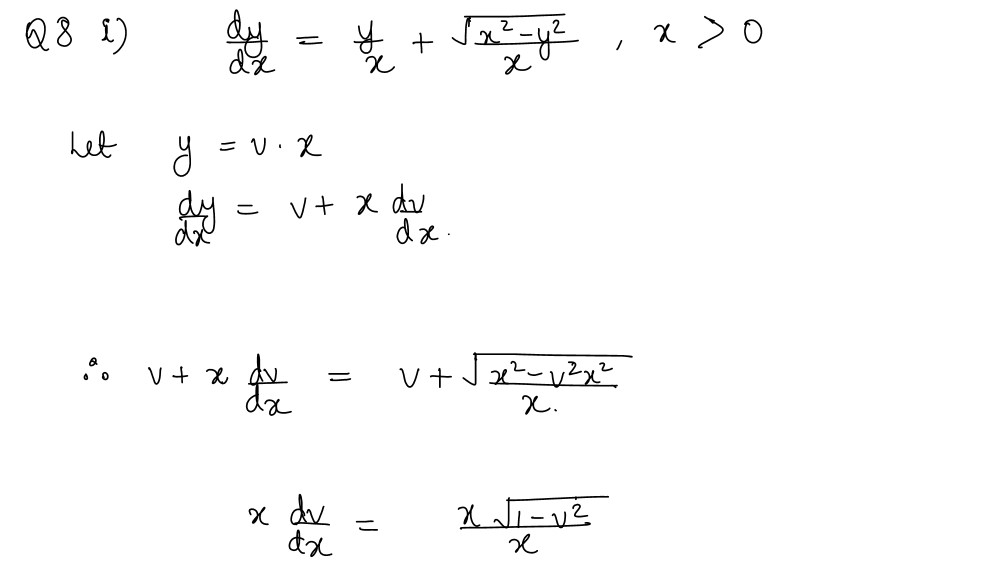 Q8 i) dy/dx = y/x + √(x² - y²)/x , x > 0
Let y = v · x
dy/dx = v + x dv/dx.
∴ v + x dv/dx = v + √(x² - v²x²)/x.
x dv/dx = x √(1 - v²)/x